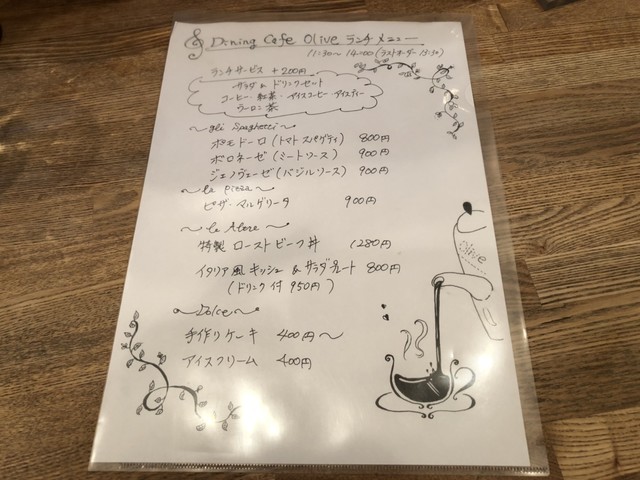 Dining Cafe Olive ランチメニュー
11:30〜14:00(ラストオーダー13:30)
ランチサービス +200円
サラダ & ドリンクセット
コーヒー・紅茶・アイスコーヒー・アイスティー
ウーロン茶
〜gli Spaghetti〜
ポモドーロ(トマトスパゲティ) 800円
ボロネーゼ(ミートソース) 900円
ジェノヴェーゼ(バジルソース) 900円
〜la pizza〜
ピザ・マルゲリータ 900円
〜le Altre〜
特製 ローストビーフ丼 1280円
イタリア風キッシュ & サラダプレート 800円
(ドリンク付 950円)
〜Dolce〜
手作りケーキ 400円〜
アイスクリーム 400円
Olive